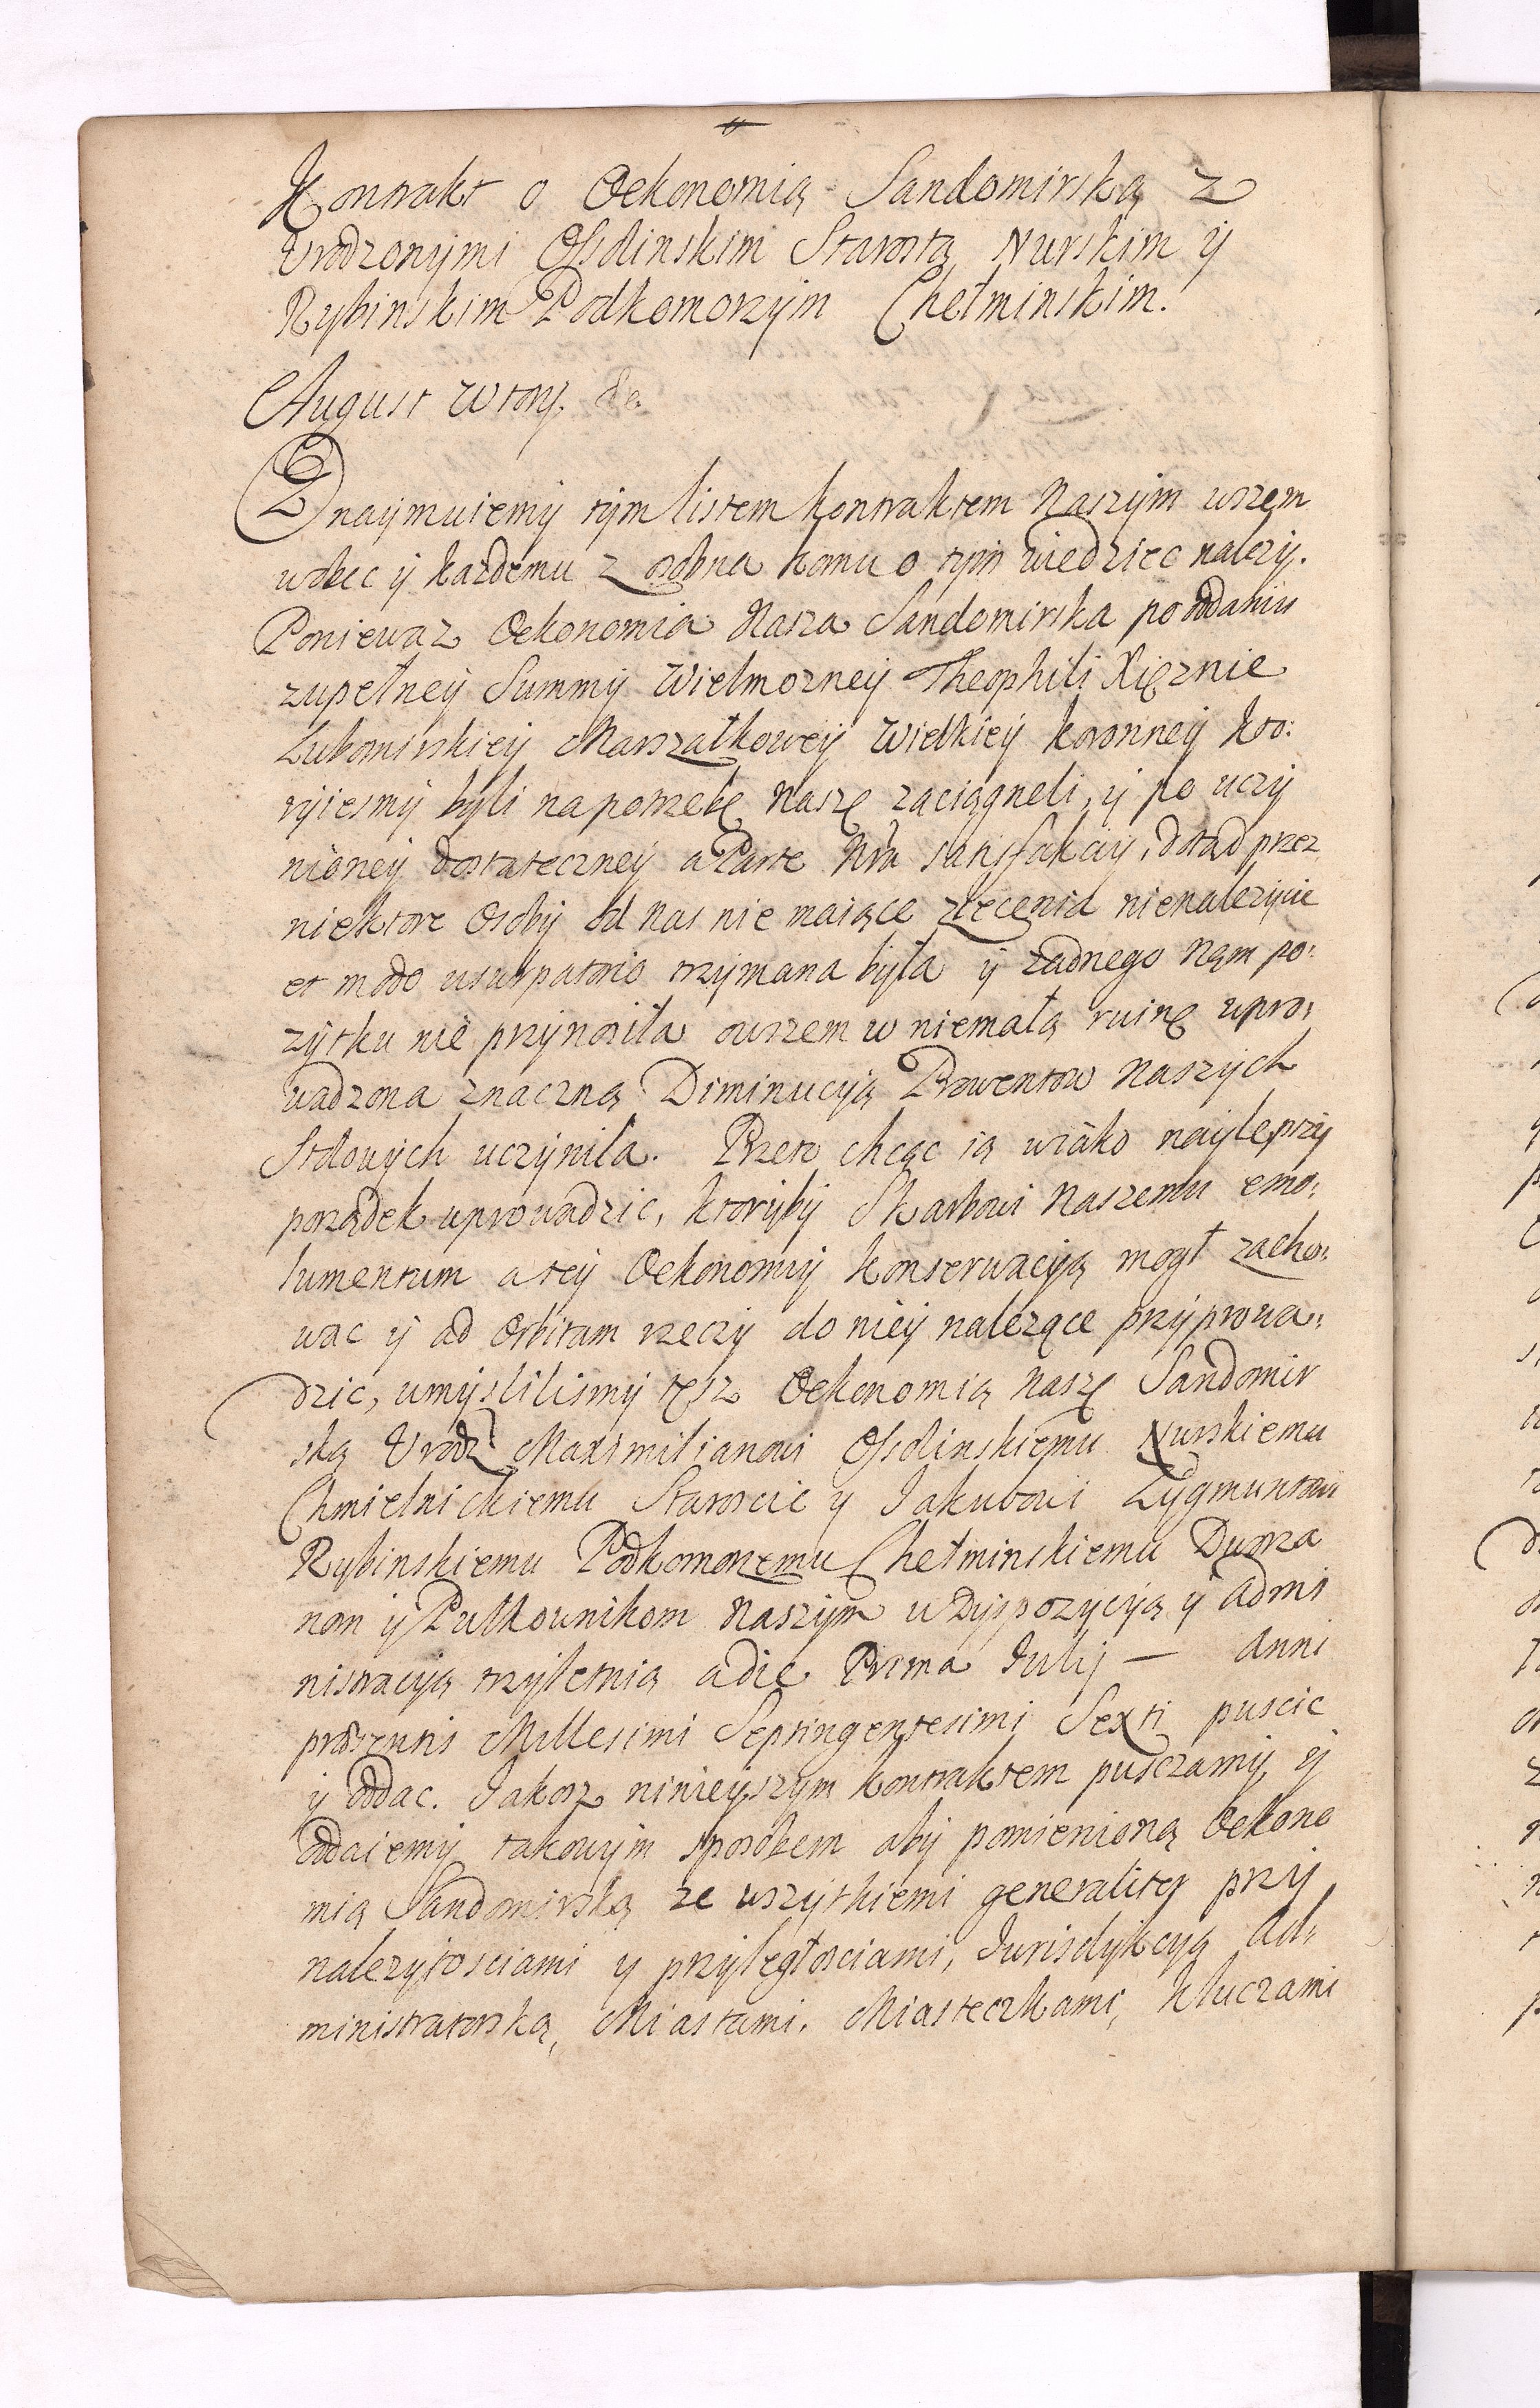 Kontrakt o Oekonomią Sandomirską z
Urodzonymi Ossolinskim Starostą Nurskim ÿ
Rybinskim Podkomorzym Chełminskim.
August Wtory. &c
Znaÿmuiemÿ tÿm listem kontraktem Naszÿm wszem
wobec ÿ kazdemu z osobna komu o tÿm wiedziec nalezÿ.
Poniewaz Oekonomia Nasza Sandomirska po oddaniu
zupełneÿ Summÿ Wielmozneÿ Theophili Xięznie
Lubomirskieÿ Marszałkoweÿ Wielkieÿ koronneÿ kto:
rÿiesmÿ bÿli na potrzebę Naszę zaciągneli, ÿ po uczÿ
nioneÿ dostateczneÿ a Parte Nra satisfakciÿ, dotąd przez
niektore Osobÿ od Nas nie maiące zlecenia nienalezÿcie
et modo usurpatorio trzÿmana bÿła ÿ zadnego Nam po:
zÿtku nie przÿnosiła owszem w niemałą ruinę wpro:
wadzona znaczną Diminucÿą Prowentow Naszÿch
Stołowÿch uczÿniła. Przeto chcąc ią w iako naÿlepszÿ
porządek wprowadzic, ktorÿbÿ Skarbowi Naszemu emo:
lumentum a teÿ Oekonomiÿ konserwacÿą mogł zacho:
wac ÿ ad Orbitam rzeczÿ do nieÿ nalezące przÿprowa:
dzic, umÿslilismÿ tęsz Oekonomią Naszę Sandomir
ską Urodz Maximilianowi Ossolinskiemu Nurskiemu
Chmielnickiemu Staroscie y Jakubowi Zygmuntowi
Rybinskiemu Podkomorzemu Chełminskiemu Dworza
nom ÿ Pułkownikom Naszÿm w Dÿspozycÿą ÿ Admi
nistracÿą trzÿletnią a die Prima Julij — Anni
præsentis Millesimi Septingentesimi Sexti puscic
ÿ oddac. Jakosz ninieÿszÿm kontraktem pusczamÿ ÿ
oddaiemÿ takowÿm sposobem abÿ pomienioną Oekono
mią Sandomirską ze wszÿtkiemi generaliter przÿ
nalezytosciami y przÿległosciami, Jurisdykcyą Ad:
ministratorską, Miastami. Miasteczkami, Kluczami